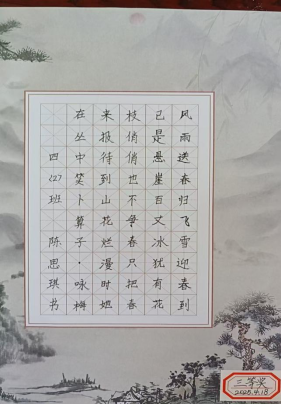 风雨送春归飞雪迎春到
已是悬崖百丈冰犹有花
枝俏俏也不争春只把春
来报待到山花烂漫时她
在丛中笑卜算子·咏梅
四(2)班 陈思琪书
三等奖